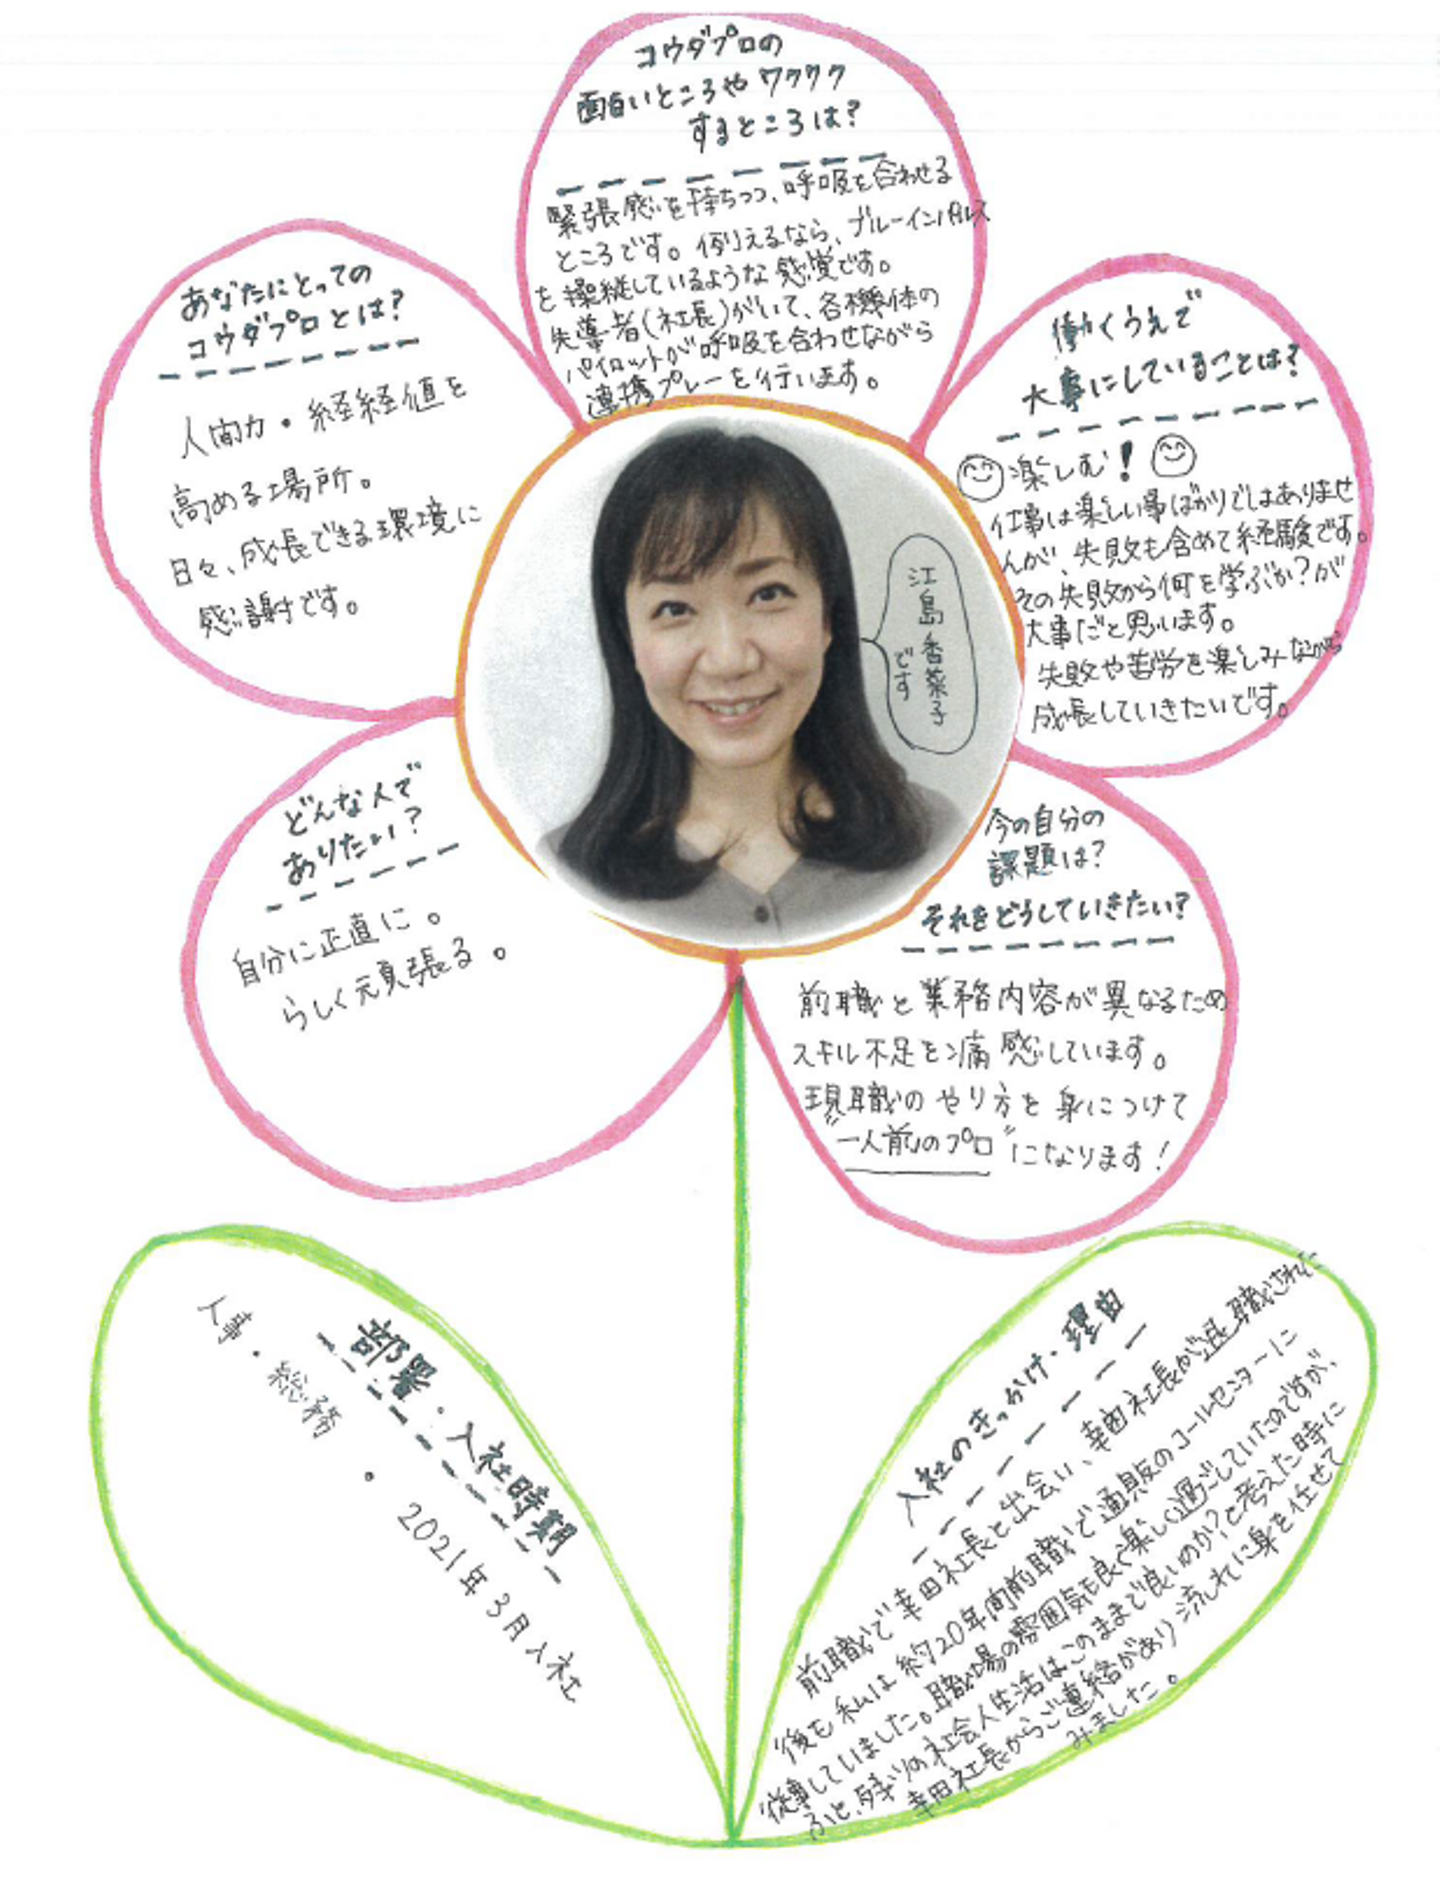 コウダプロの
面白いところやワクワク
するところは?
緊張感を持ちつつ、呼吸を合わせる
ところです。例えるなら、ブルーインパルス
を操縦しているような感覚です。
先導者(社長)がいて、各機体の
パイロットが呼吸を合わせながら
連携プレーを行います。
あなたにとっての
コウダプロとは?
人間力・経経値を
高める場所。
日々、成長できる環境に
感謝です。
働くうえで
大事にしていることは?
楽しむ!
仕事は楽しい事ばかりではありませ
んが、失敗も含めて経験です。
その失敗から何を学ぶか?が
大事だと思います。
失敗や苦労を楽しみながら
成長していきたいです。
江島香菜子
です
どんな人で
ありたい?
自分に正直に。
らしく頑張る。
今の自分の
課題は?
それをどうしていきたい?
前職と業務内容が異なるため
スキル不足を痛感しています。
現職のやり方を身につけて
"一人前のプロ"になります!
部署・入社時期
人事・総務
・2021年3月入社
入社のきっかけ・理由
前職で幸田社長と出会い、幸田社長が退職された
後も私は約20年間前職で通販のコールセンターに
従事していました。職場の雰囲気も良く楽しく過ごしていたのですが、
ふと、残りの社会人生活はこのままで良いのか?と考えた時に
幸田社長からご連絡があり流れに身を任せて
みました。